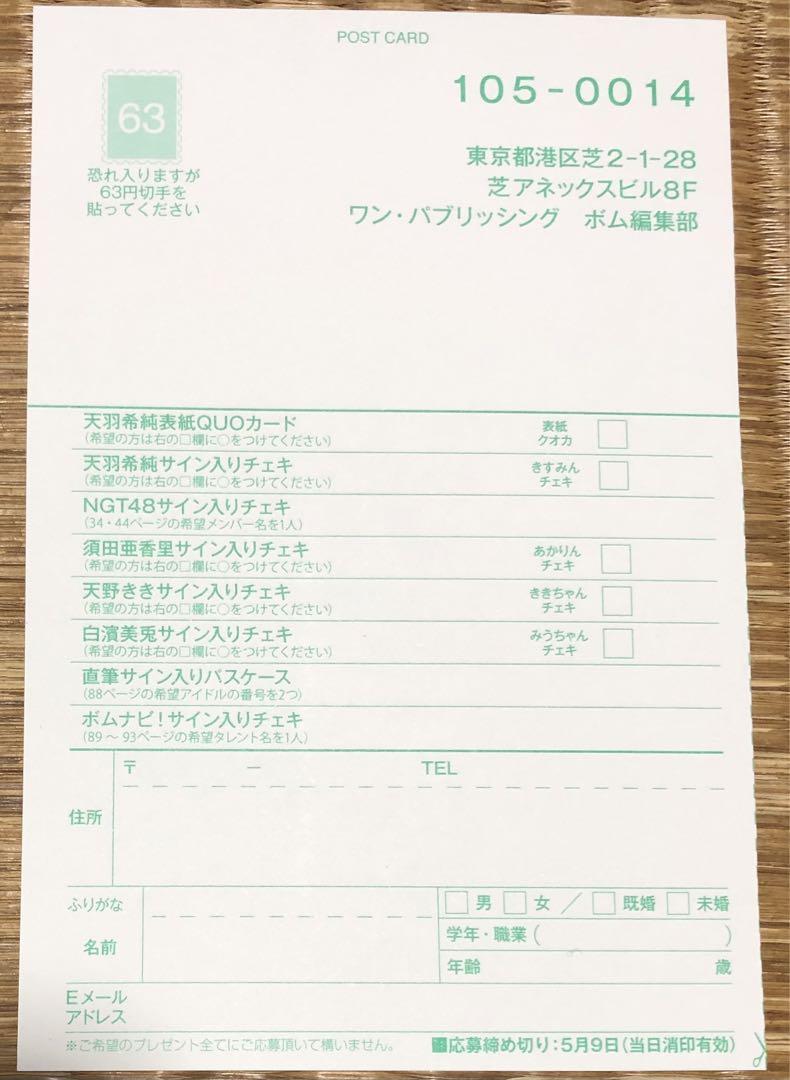 POST CARD
63
恐れ入りますが
63円切手を
貼ってください
105-0014
東京都港区芝2-1-28
芝アネックスビル8F
ワン・パブリッシング　ボム編集部
天羽希純表紙QUOカード
(希望の方は右の□欄に○をつけてください)
表紙
クオカ
天羽希純サイン入りチェキ
(希望の方は右の□欄に○をつけてください)
きすみん
チェキ
NGT48サイン入りチェキ
(34・44ページの希望メンバー名を1人)
須田亜香里サイン入りチェキ
(希望の方は右の□欄に○をつけてください)
あかりん
チェキ
天野ききサイン入りチェキ
(希望の方は右の□欄に○をつけてください)
ききちゃん
チェキ
白濱美兎サイン入りチェキ
(希望の方は右の□欄に○をつけてください)
みうちゃん
チェキ
直筆サイン入りパスケース
(88ページの希望アイドルの番号を2つ)
ボムナビ!サイン入りチェキ
(89～93ページの希望タレント名を1人)
〒　　－　　TEL
住所
ふりがな
名前
□男 □女 ／ □既婚 □未婚
学年・職業(　　)
年齢　　歳
Eメール
アドレス
※ご希望のプレゼント全てにご応募頂いて構いません。
応募締め切り:5月9日(当日消印有効)